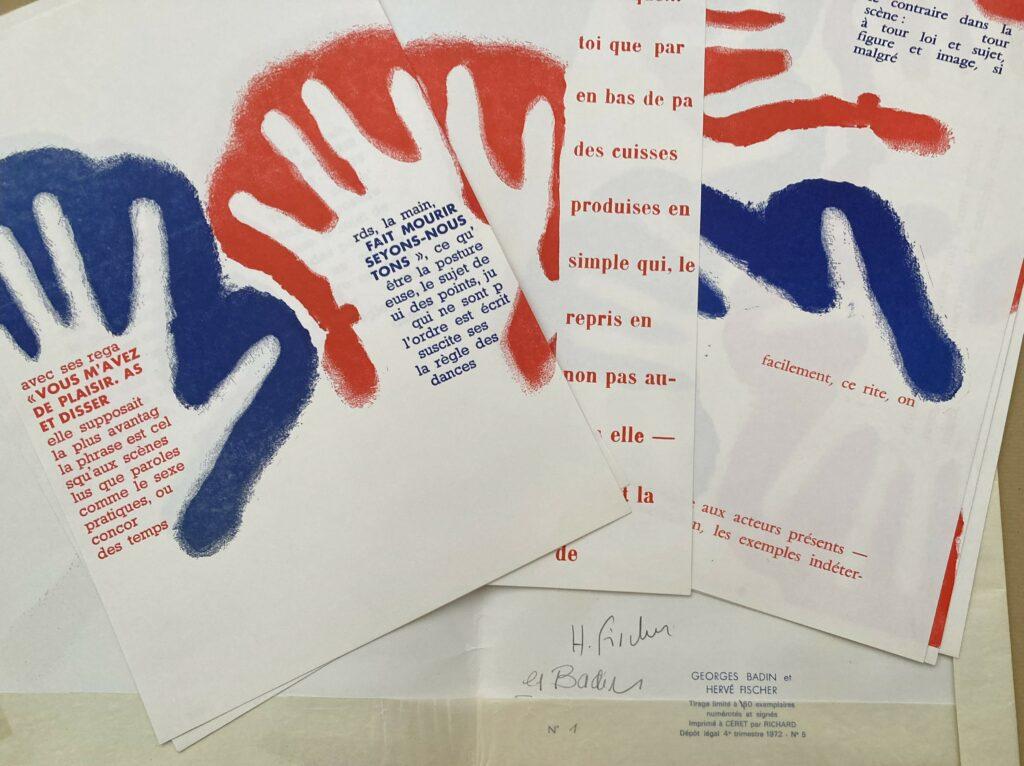 avec ses rega
« VOUS M'AVEZ
DE PLAISIR. AS
ET DISSER
elle supposait
la plus avantag
la phrase est cel
squ'aux scènes
lus que paroles
comme le sexe
pratiques, ou
concor
des temps
rds, la main,
FAIT MOURIR
SEYONS-NOUS
TONS », ce qu'
être la posture
euse, le sujet de
ui des points, ju
qui ne sont p
l'ordre est écrit
suscite ses
la règle des
dances
toi que par
en bas de pa
des cuisses
produises en
simple qui, le
repris en
non pas au-
elle —
t la
de
contraire dans la
scène : tour
à tour loi et sujet,
figure et image, si
malgré
facilement, ce rite, on
aux acteurs présents —
n, les exemples indéter-
H. Fischer
Badin
GEORGES BADIN et
HERVÉ FISCHER
Tirage limité à 50 exemplaires
numérotés et signés
Imprimé à CÉRET par RICHARD
Dépôt légal 4e trimestre 1972 - N° 5
N° 1